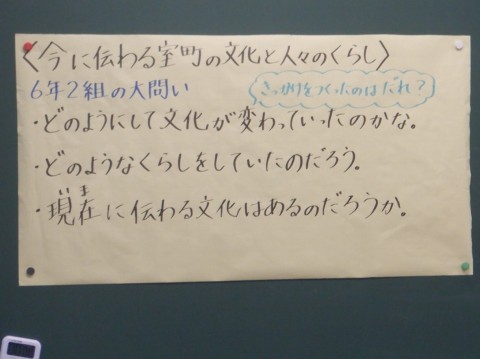 〈今に伝わる室町の文化と人々のくらし〉
6年2組の大問い
きっかけをつくったのはだれ？
・どのようにして文化が変わっていったのかな。
・どのようなくらしをしていたのだろう。
いま
・現在に伝わる文化はあるのだろうか。